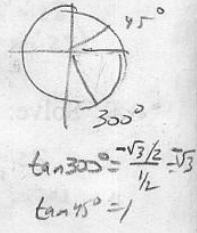 45°
300°
tan300° = -√3/2 / 1/2 = -√3
tan45° = 1